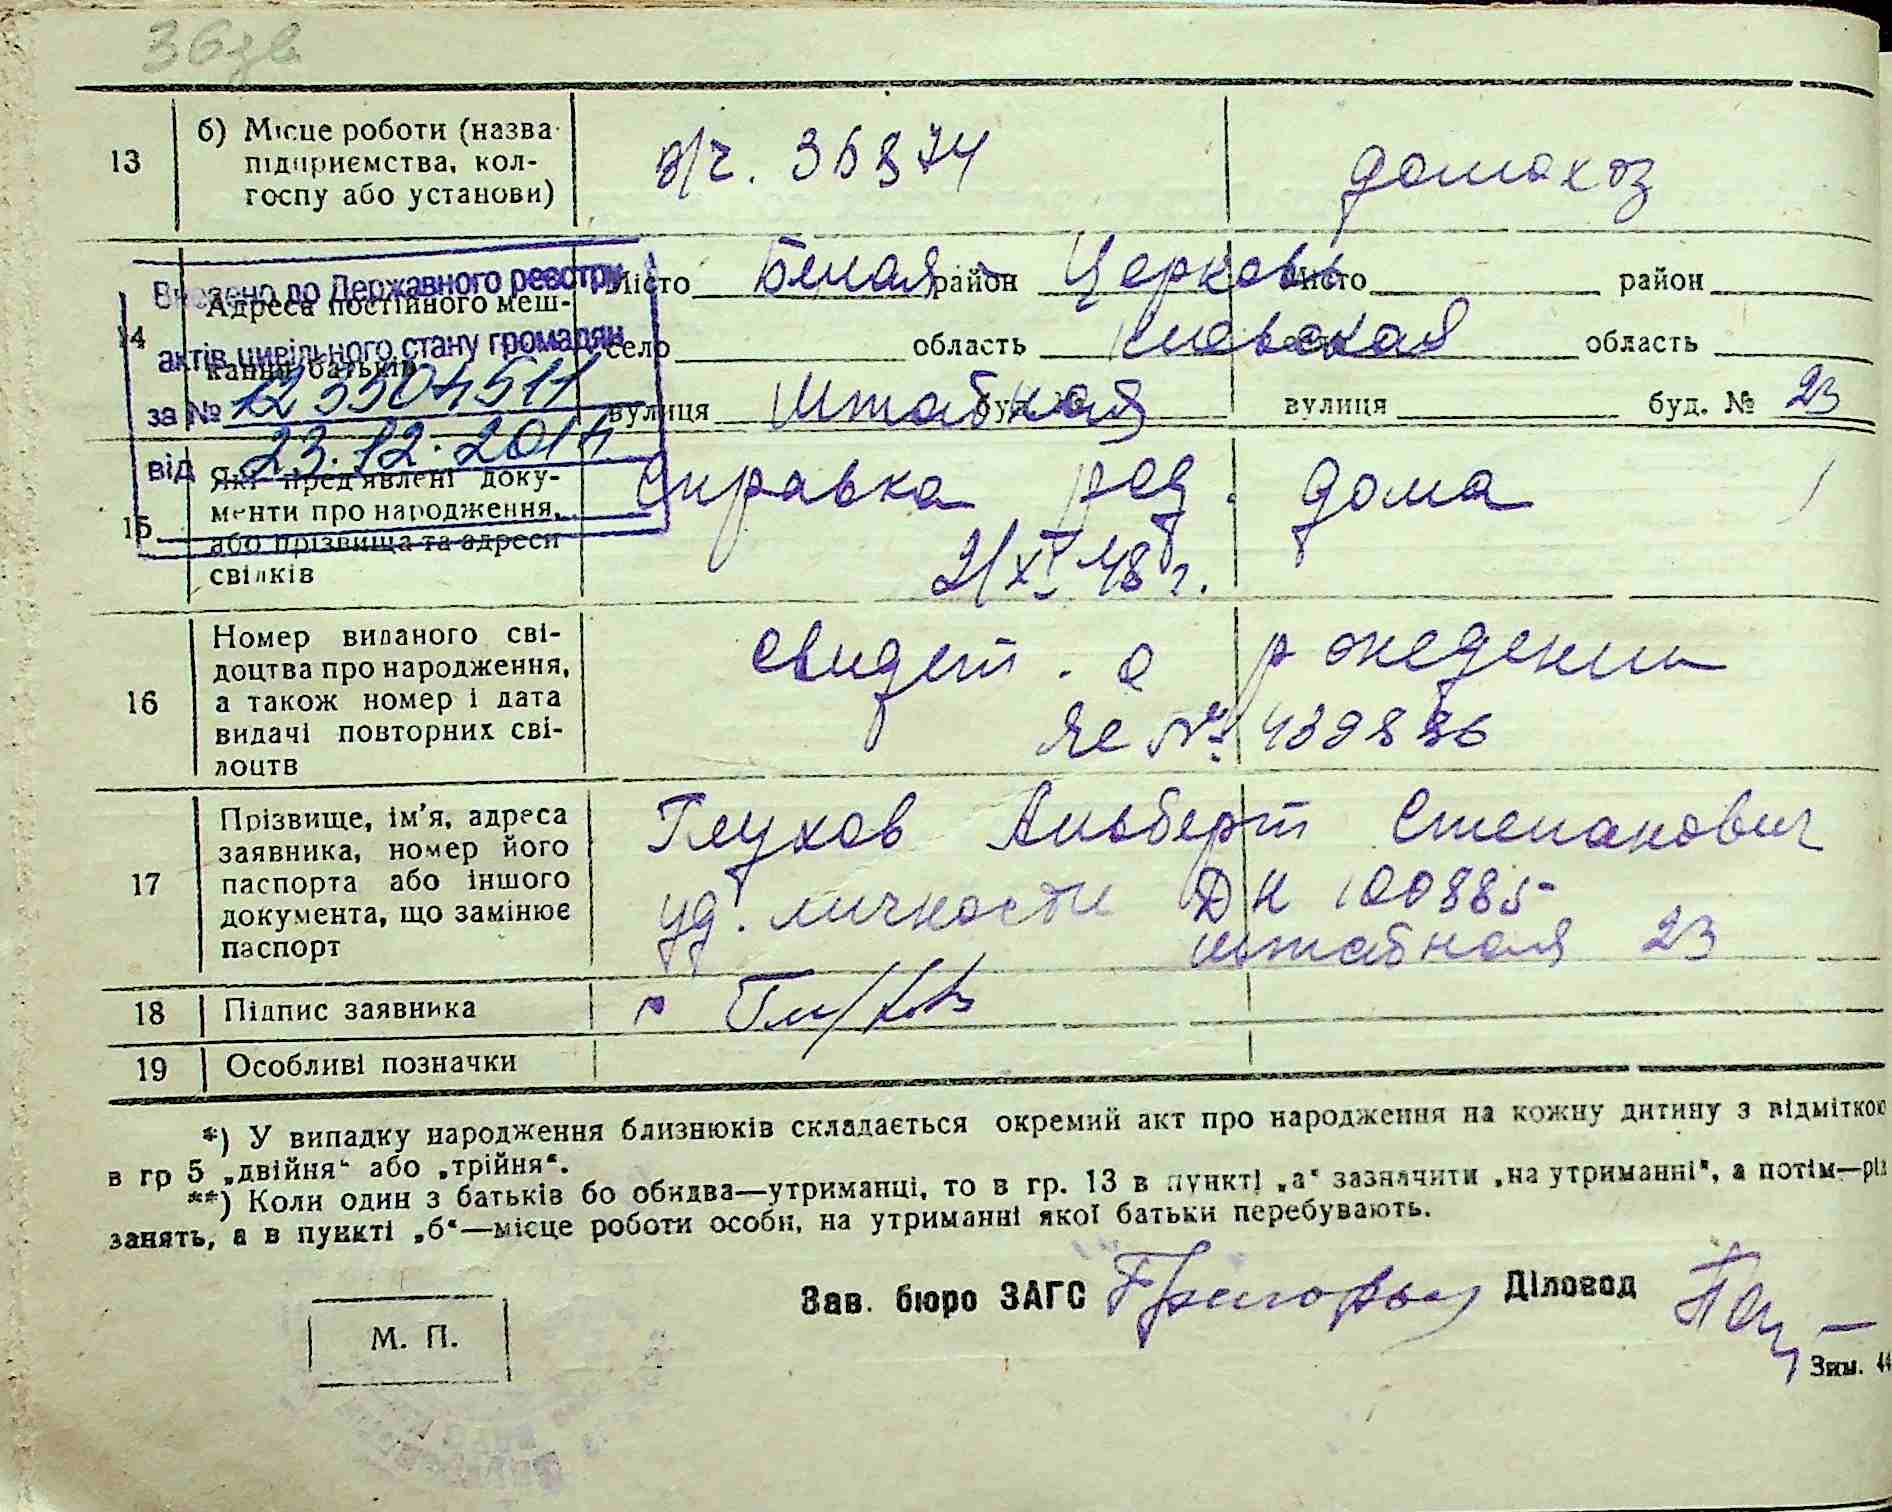 36зв
13 б) Місце роботи (назва
підприємства, кол-
госпу або установи)
в/ч. 36874 домохоз
Внесено до Державного реєстру
актів цивільного стану громадян
за № 12
від 23.12.2014
14 Адреса постійного меш-
кання батьків
Місто Белая район Церковь Місто район
село область Киевская область
вулиця Штабная буд. № вулиця буд. № 23
15 Які пред'явлені доку-
менти про народження,
або прізвища та адреси
свідків
Справка род. дома
2/XI 48 г.
16 Номер виданого сві-
доцтва про народження,
а також номер і дата
видачі повторних сві-
доцтв
Свидет. о рождении
ЯЕ № 439886
17 Прізвище, ім'я, адреса
заявника, номер його
паспорта або іншого
документа, що замінює
паспорт
Глухов Альберт Степанович
уд. личности ДН 100885
Штабная 23
18 Підпис заявника
19 Особливі позначки
*) У випадку народження близнюків складається окремий акт про народження на кожну дитину з відміткою
в гр 5 „двійня“ або „трійня“.
**) Коли один з батьків бо обидва—утриманці, то в гр. 13 в пункті „а“ зазначити „на утриманні“, а потім—рід
занять, а в пункті „б“—місце роботи особи, на утриманні якої батьки перебувають.
Зав. бюро ЗАГС Діловод
М. П.
Зим. 44